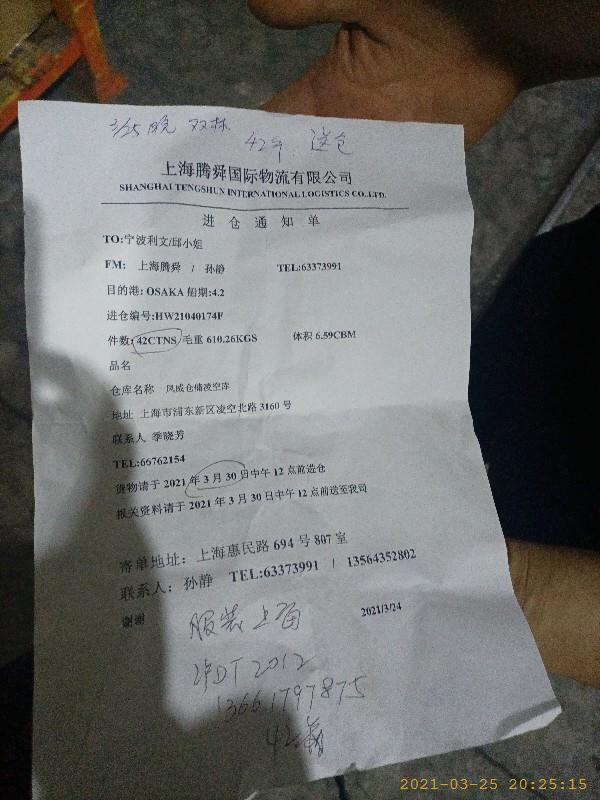 3/25晚 双林
42件 送仓
上海腾舜国际物流有限公司
SHANGHAI TENGSHUN INTERNATIONAL LOGISTICS CO.LTD.
进仓通知单
TO:宁波利文/邱小姐
FM: 上海腾舜 / 孙静 TEL:63373991
目的港: OSAKA 船期:4.2
进仓编号:HW21040174F
件数: 42CTNS 毛重 610.26KGS 体积 6.59CBM
品名
仓库名称 风威仓储凌空库
地址 上海市浦东新区凌空北路 3160 号
联系人 季晓芳
TEL:66762154
货物请于 2021 年 3 月 30 日中午 12 点前进仓
报关资料请于 2021 年 3 月 30 日中午 12 点前送至我司
寄单地址: 上海惠民路 694 号 807 室
联系人: 孙静 TEL:63373991 / 13564352802
谢谢
2021/3/24
服装上海
沪DT2012
13661797875
42箱
2021-03-25 20:25:15